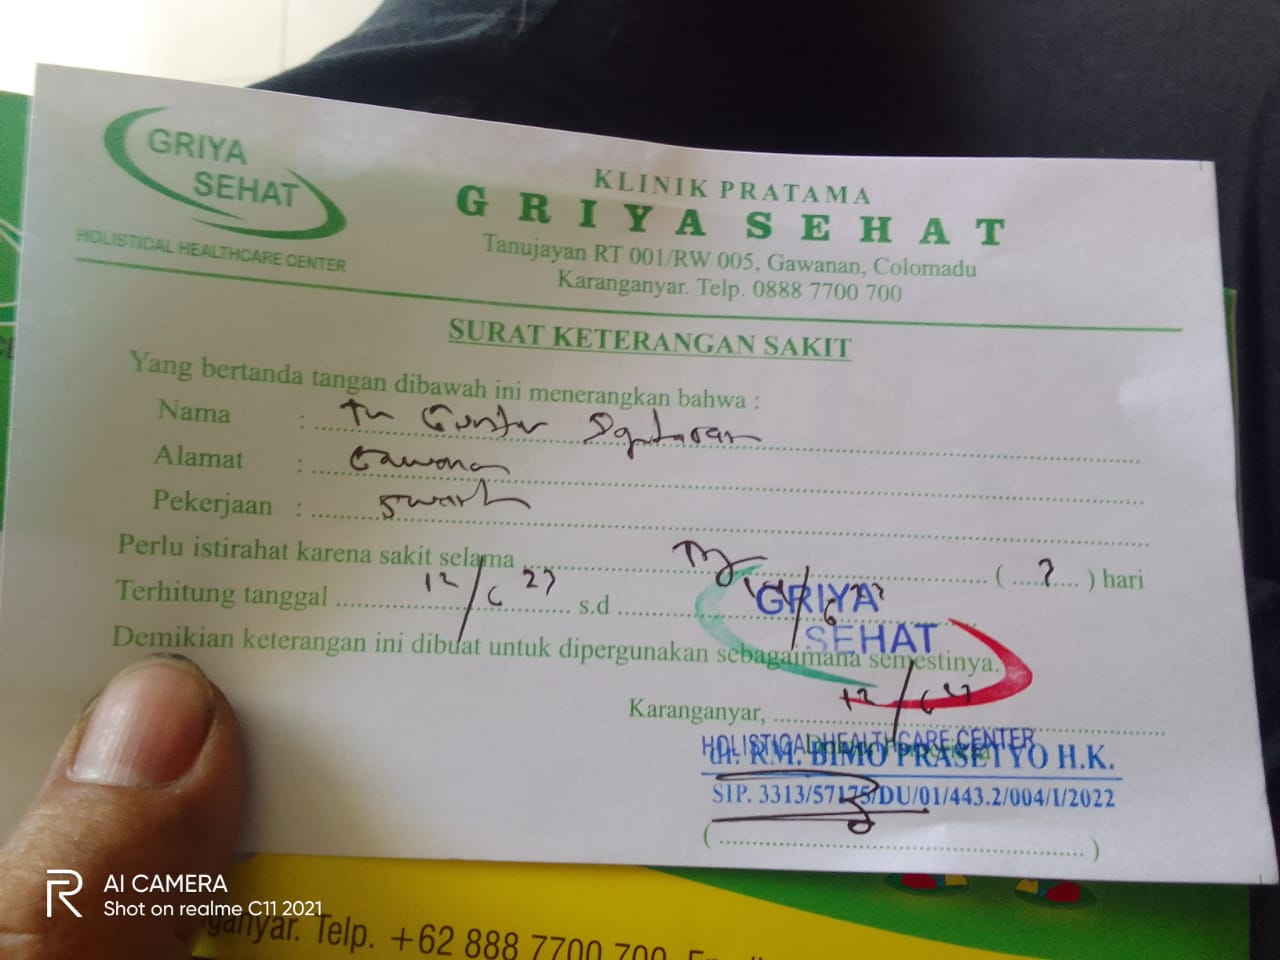 GRIYA
SEHAT
HOLISTICAL HEALTHCARE CENTER
KLINIK PRATAMA
GRIYA SEHAT
Tanujayan RT 001/RW 005, Gawanan, Colomadu
Karanganyar. Telp. 0888 7700 700
SURAT KETERANGAN SAKIT
Yang bertanda tangan dibawah ini menerangkan bahwa :
Nama : Tn
Alamat : Gawanan
Pekerjaan : swasta
Perlu istirahat karena sakit selama ( 3 ) hari
Terhitung tanggal 12/6 23 s.d
Demikian keterangan ini dibuat untuk dipergunakan sebagaimana semestinya.
GRIYA
SEHAT
Karanganyar, 12/6 23
HOLISTICAL HEALTHCARE CENTER
dr. RM. BIMO PRASETYO H.K.
SIP. 3313/57175/DU/01/443.2/004/I/2022
( )
AI CAMERA
Shot on realme C11 2021
nganyar. Telp. +62 888 7700 700